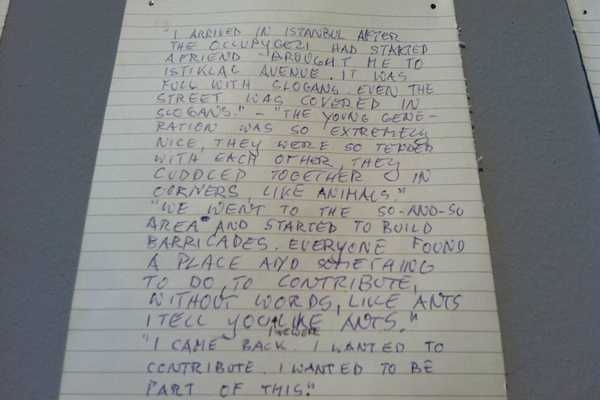 "I ARRIVED IN ISTANBUL AFTER
THE OCCUPYGEZI HAD STARTED
A FRIEND BROUGHT ME TO
ISTIKLAL AVENUE. IT WAS
FULL WITH SLOGANS. EVEN THE
STREET WAS COVERED IN
SLOGANS." – "THE YOUNG GENE-
RATION WAS SO EXTREMELY
NICE, THEY WERE SO TENDER
WITH EACH OTHER, THEY
CUDDLED TOGETHER IN
CORNERS, LIKE ANIMALS."
"WE WENT TO THE SO-AND-SO
AREA AND STARTED TO BUILD
BARRICADES. EVERYONE FOUND
A PLACE AND SOMETHING
TO DO, TO CONTRIBUTE,
WITHOUT WORDS, LIKE ANTS
I TELL YOU LIKE ANTS."
"I CAME BACK. I WANTED TO
CONTRIBUTE. I WANTED TO BE
PART OF THIS."